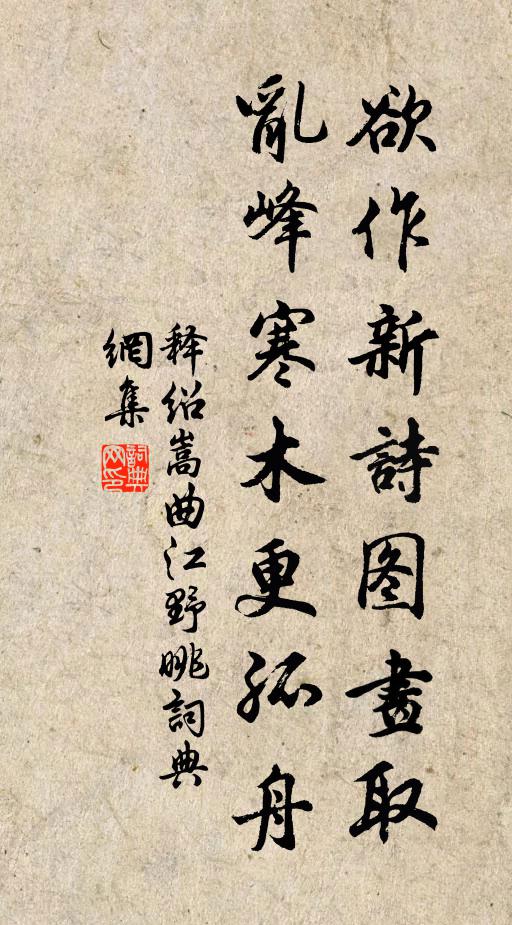 欲作新詩图畫取
亂峰寒木更孤舟
释绍嵩曲江野眺詞典
網集
詞典
网印